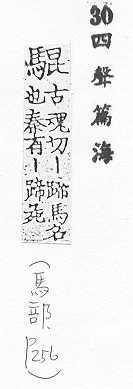 30四聲篇海
騉古魂切丨蹄馬名
也秦有丨蹄苑
(馬部
P256)